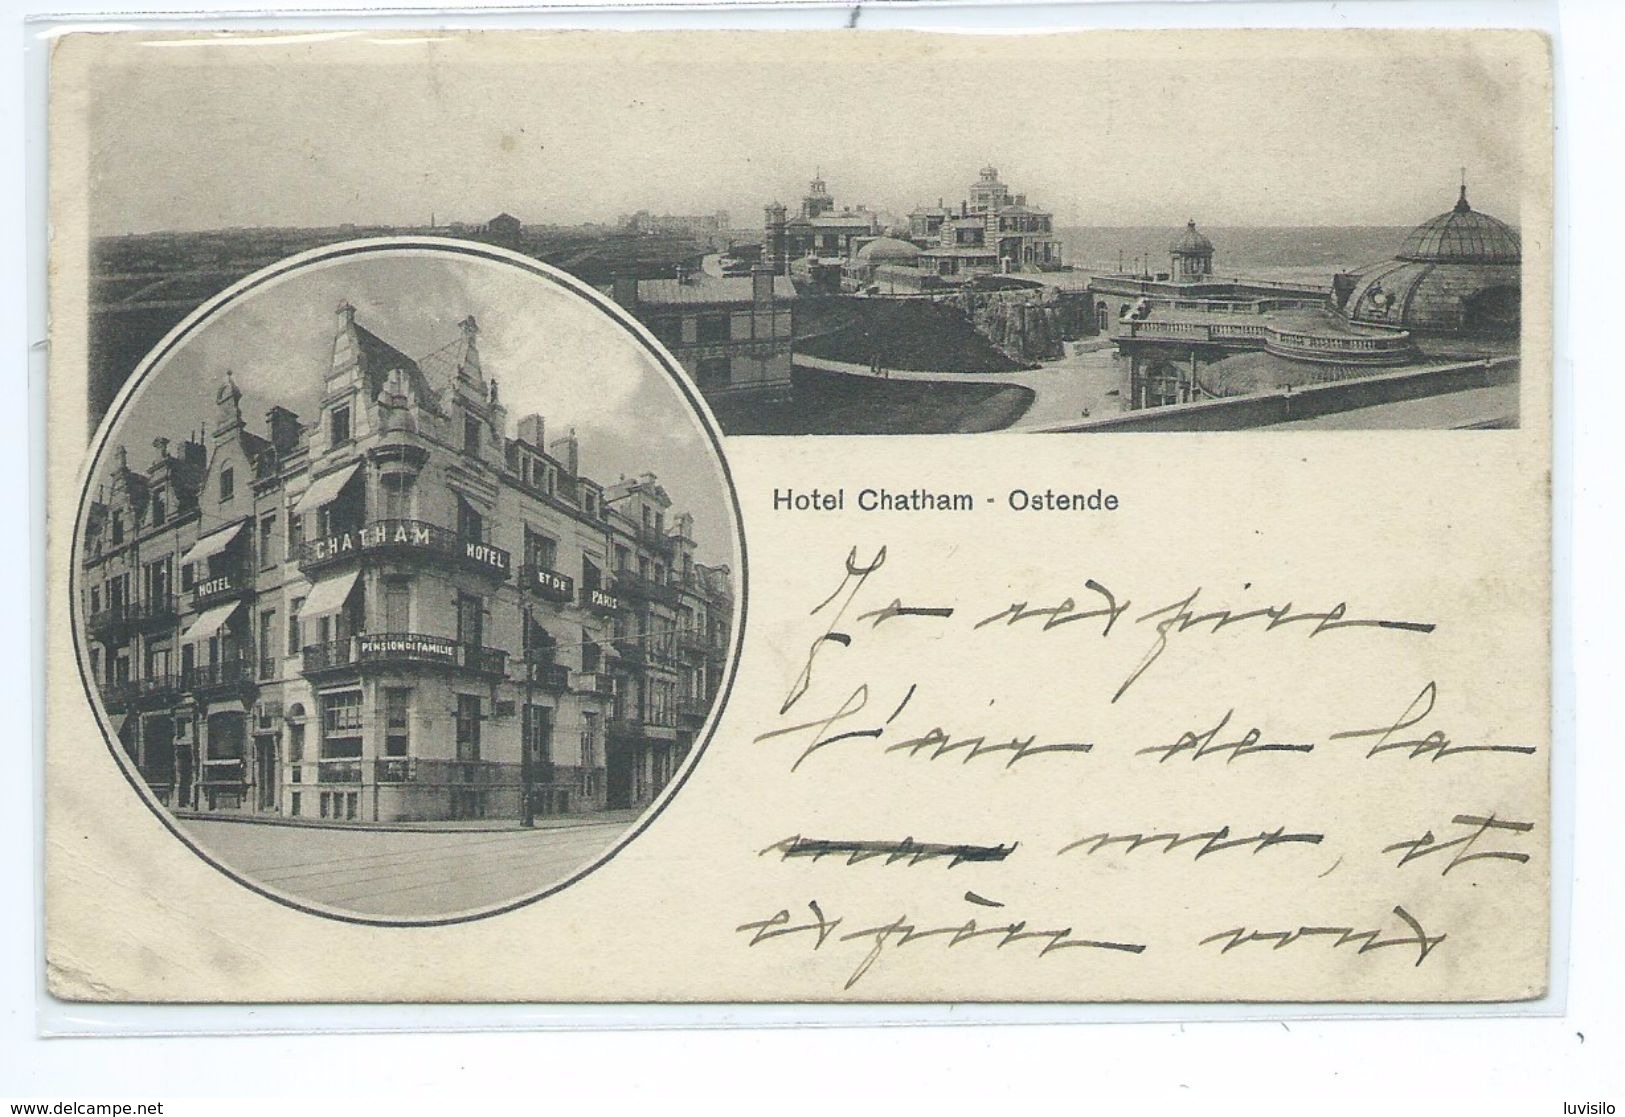 CHATHAM
HOTEL
HOTEL
ET DE
PARIS
PENSION DE FAMILLE
Hotel Chatham - Ostende
Je respire
l'air de la
mer, et
espère vous
www.delcampe.net
luvisilo